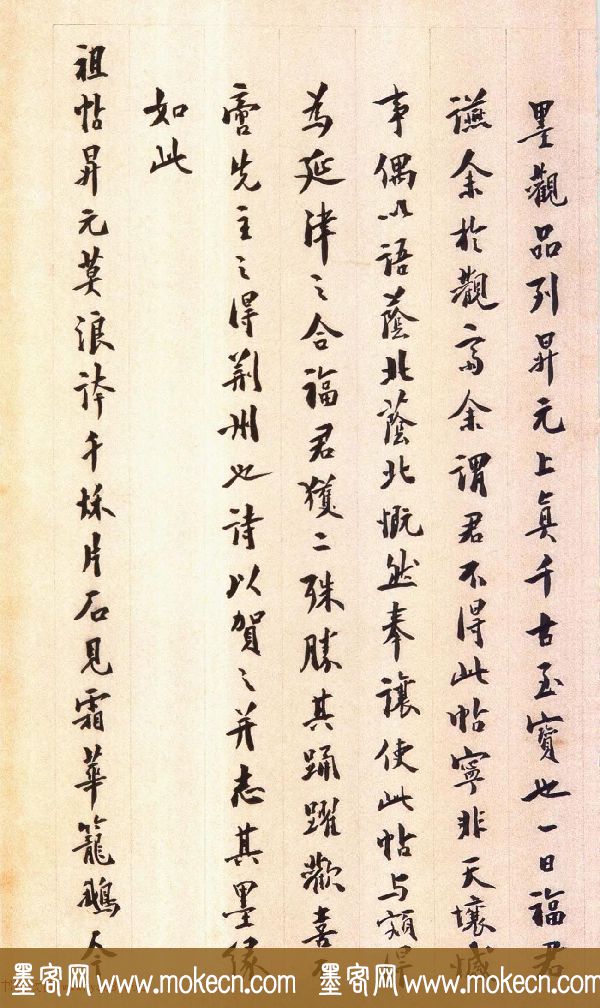 墨觀品列昇元上真千古至寶也一日福君
讌余於觀齋余謂君不得此帖寧非天壤憾
事偶以語蔭北蔭北慨然奉讓使此帖与穎得
為延津之合福君獲二殊勝其踊躍歡喜不
啻先主之得荆州也詩以賀之并志其墨缘
如此
祖帖昇元莫浪誇千秌片石見霜華籠鵝今
墨客网 www.mokecn.com 墨客网 www.mokecn.com